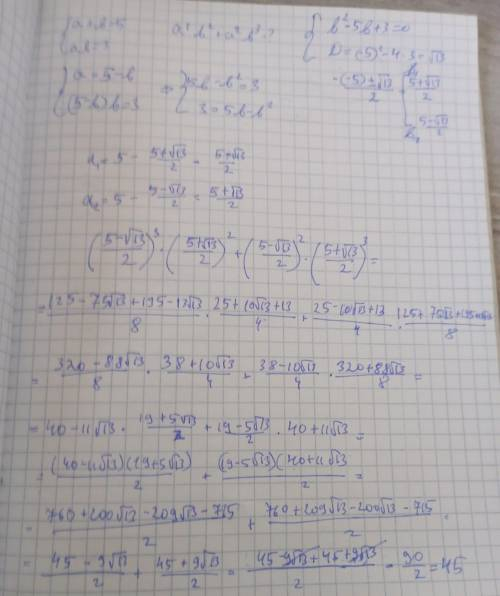 { a + b = 5   a³b² + a²b³ - ?   { b² - 5b + 3 = 0
ab = 3   D = (-5)² - 4·3 = √13
{ a = 5 - b   { 5b - b² = 3   -(-5) ± √13 / 2   b₁ 5+√13 / 2
(5-b)b = 3   3 = 5b - b²   b₂ 5-√13 / 2
a₁ = 5 - (5+√13)/2 = (5+√13)/2
a₂ = 5 - (5-√13)/2 = (5+√13)/2
((5-√13)/2)³ · ((5+√13)/2)² + ((5-√13)/2)² · ((5+√13)/2)³ =
= (125 - 75√13 + 195 - 13√13)/8 · (25 + 10√13 + 13)/4 + (25 - 10√13 + 13)/4 · (125 + 75√13 + 195 + 13√13)/8
= (320 - 88√13)/8 · (38 + 10√13)/4 + (38 - 10√13)/4 · (320 + 88√13)/8 =
= 40 - 11√13 · (19 + 5√13)/2 + (19 - 5√13)/2 · 40 + 11√13 =
= (40 - 11√13)(19 + 5√13)/2 + (19 - 5√13)(40 + 11√13)/2 =
= (760 + 200√13 - 209√13 - 715)/2 + (760 + 209√13 - 200√13 - 715)/2 =
= (45 - 9√13)/2 + (45 + 9√13)/2 = (45 - 9√13 + 45 + 9√13)/2 = 90/2 = 45